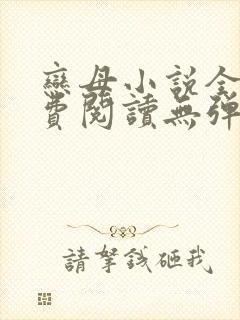 戀母小說全
費閱讀無彈
請拏錢砸我